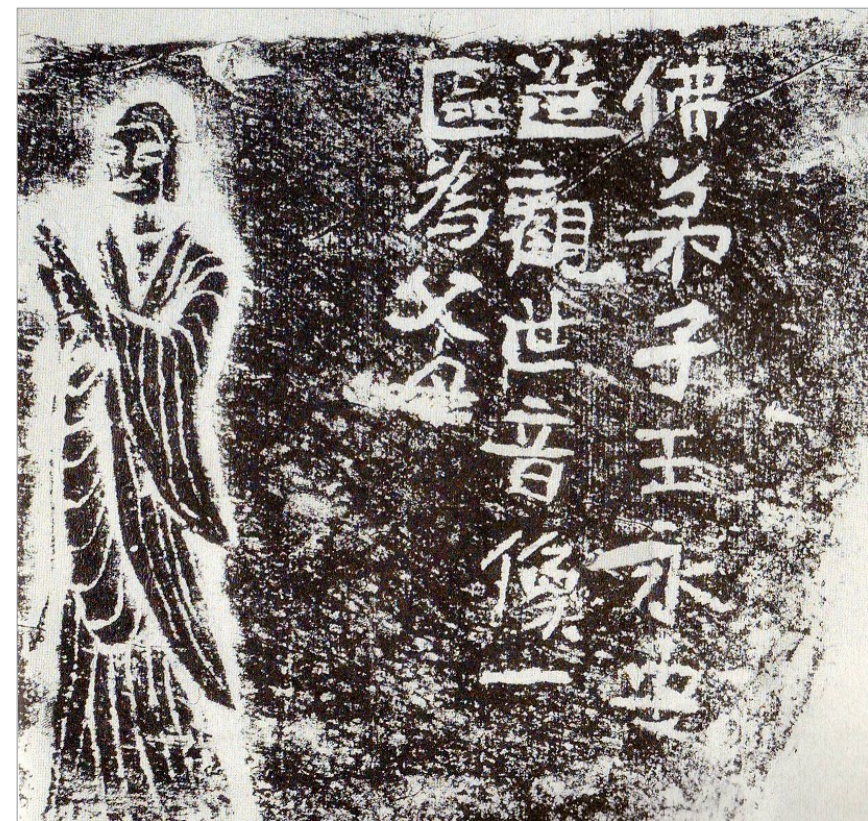 佛弟子王永安
造觀世音像一
區為父母